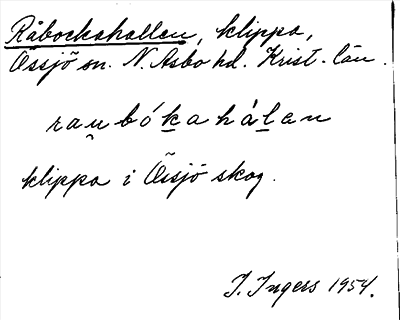 Råbockahallen, klippa,
Össjö sn. N. Asbo hd. Krist. län.
rau̯bókahálan
klippa i Össjö skog.
I. Ingers 1954.